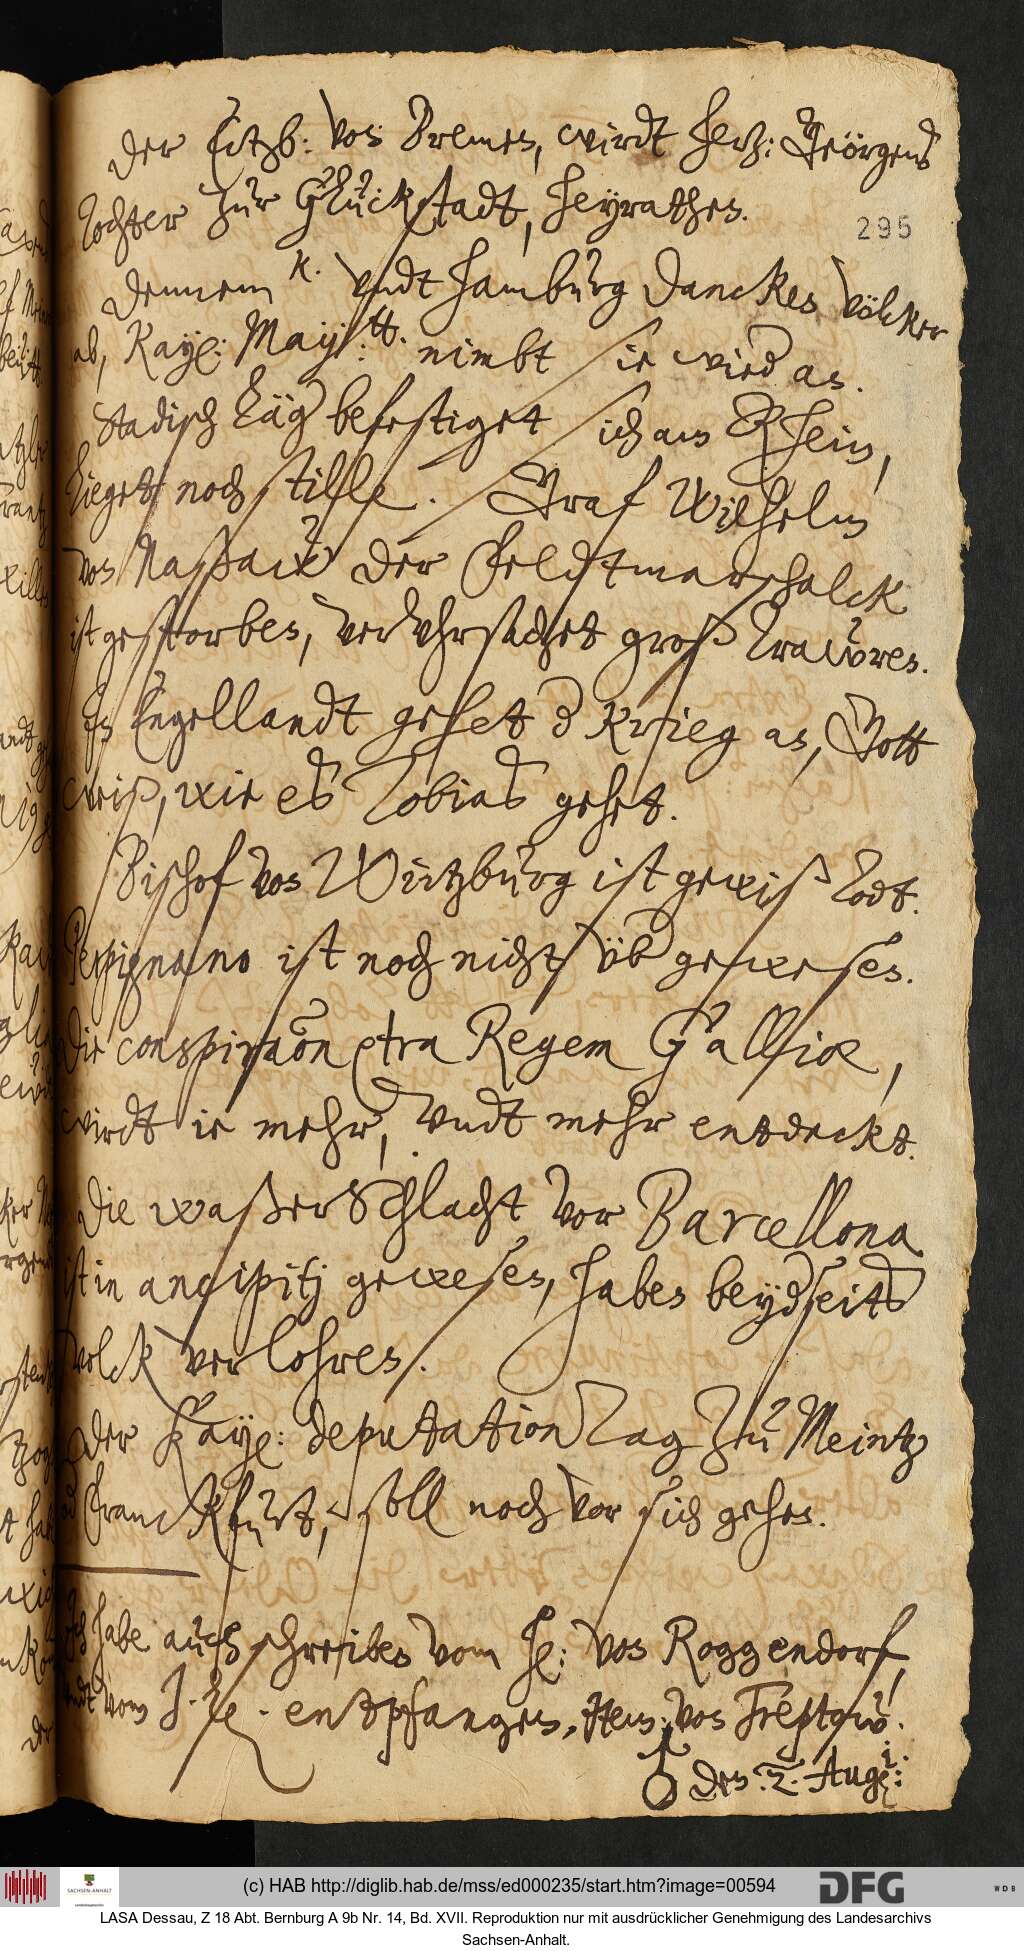 Der Ertzb: von Bremen, wirdt Hertz: Geörgens
Tochter zur Glückstadt, heyrathen.
295
Dennem k. vndt Hamburg dancken völcker
ab, Kay: May: tt. nimbt sie wied an.
Stadisch Läg befestiget sich am Rhein,
lieget noch stille. Graf Wilhelm
von Naßaw der Feldtmarschalck
ist gestorben, vervhrsachet groß trawren.
In Engellandt gehet d krieg an, Gott
weiß, wie es Tobias gehet.
Bischof von Würtzburg ist gewiß todt.
Perpignano ist noch nicht vb gewesen.
Die conspiraon ctra Regem Galliæ,
wirdt ie mehr, vndt mehr entdeckt.
Die waßerSchlacht vor Barcellona
ist in ancipitj gewesen, haben beydseits
volck verlohren.
Der Kay: deputation Tag zu Meintz
od Franckfurt, soll noch vor sich gehen.
Ich habe auch schreiben vom H: von Roggendorf,
vndt vom entpfangen, Item: von Treptow.
♁ den 2. Aug:
(c) HAB http://diglib.hab.de/mss/ed000235/start.htm?image=00594
DFG
WDB
SACHSEN-ANHALT
LASA Dessau, Z 18 Abt. Bernburg A 9b Nr. 14, Bd. XVII. Reproduktion nur mit ausdrücklicher Genehmigung des Landesarchivs
Sachsen-Anhalt.